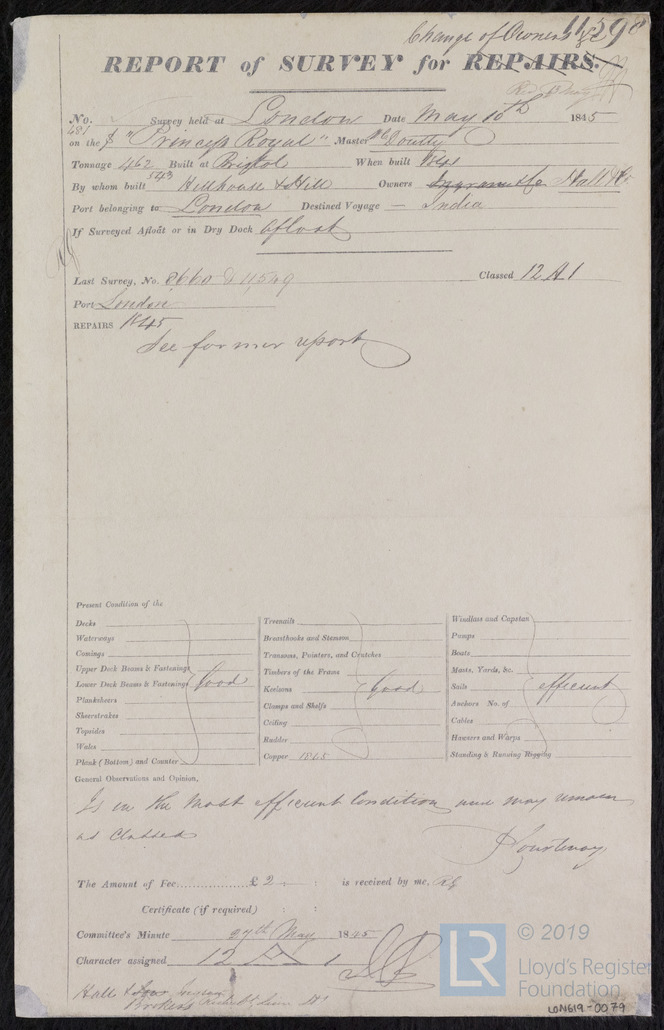 Change of Owners 11,290
REPORT of SURVEY for REPAIRS.
No. Survey held at London Date May 10th 1845
481
on the S "Princess Royal" Master Doutty
Tonnage 462 Built at Bristol When built 1841
543
By whom built Hillhouse & Hill Owners Ingram & Co Hall & Co.
Port belonging to London Destined Voyage — India
If Surveyed Afloat or in Dry Dock afloat
Last Survey, No. 8660 & 11,549 Classed 12 A 1
Port London
REPAIRS 1845
See former report
Present Condition of the
Decks
Waterways
Comings
Upper Deck Beams & Fastenings
Lower Deck Beams & Fastenings Good
Planksheers
Sheerstrakes
Topsides
Wales
Plank (Bottom) and Counter
Treenails
Breasthooks and Stemson
Transoms, Pointers, and Crutches
Timbers of the Frame
Keelsons Good
Clamps and Shelfs
Ceiling
Rudder
Copper 1845
Windlass and Capstan
Pumps
Boats
Masts, Yards, &c.
Sails efficient
Anchors No. of
Cables
Hawsers and Warps
Standing & Running Rigging
General Observations and Opinion,
Is in the most efficient Condition and may remain
as Classed
P Courtenay
The Amount of Fee £ 2 : : is received by me,
Certificate (if required) : :
Committee's Minute 27th May 1845
Character assigned 12 A 1
Halls &
Brokers
LR © 2019
Lloyd's Register
Foundation
LON619-0079